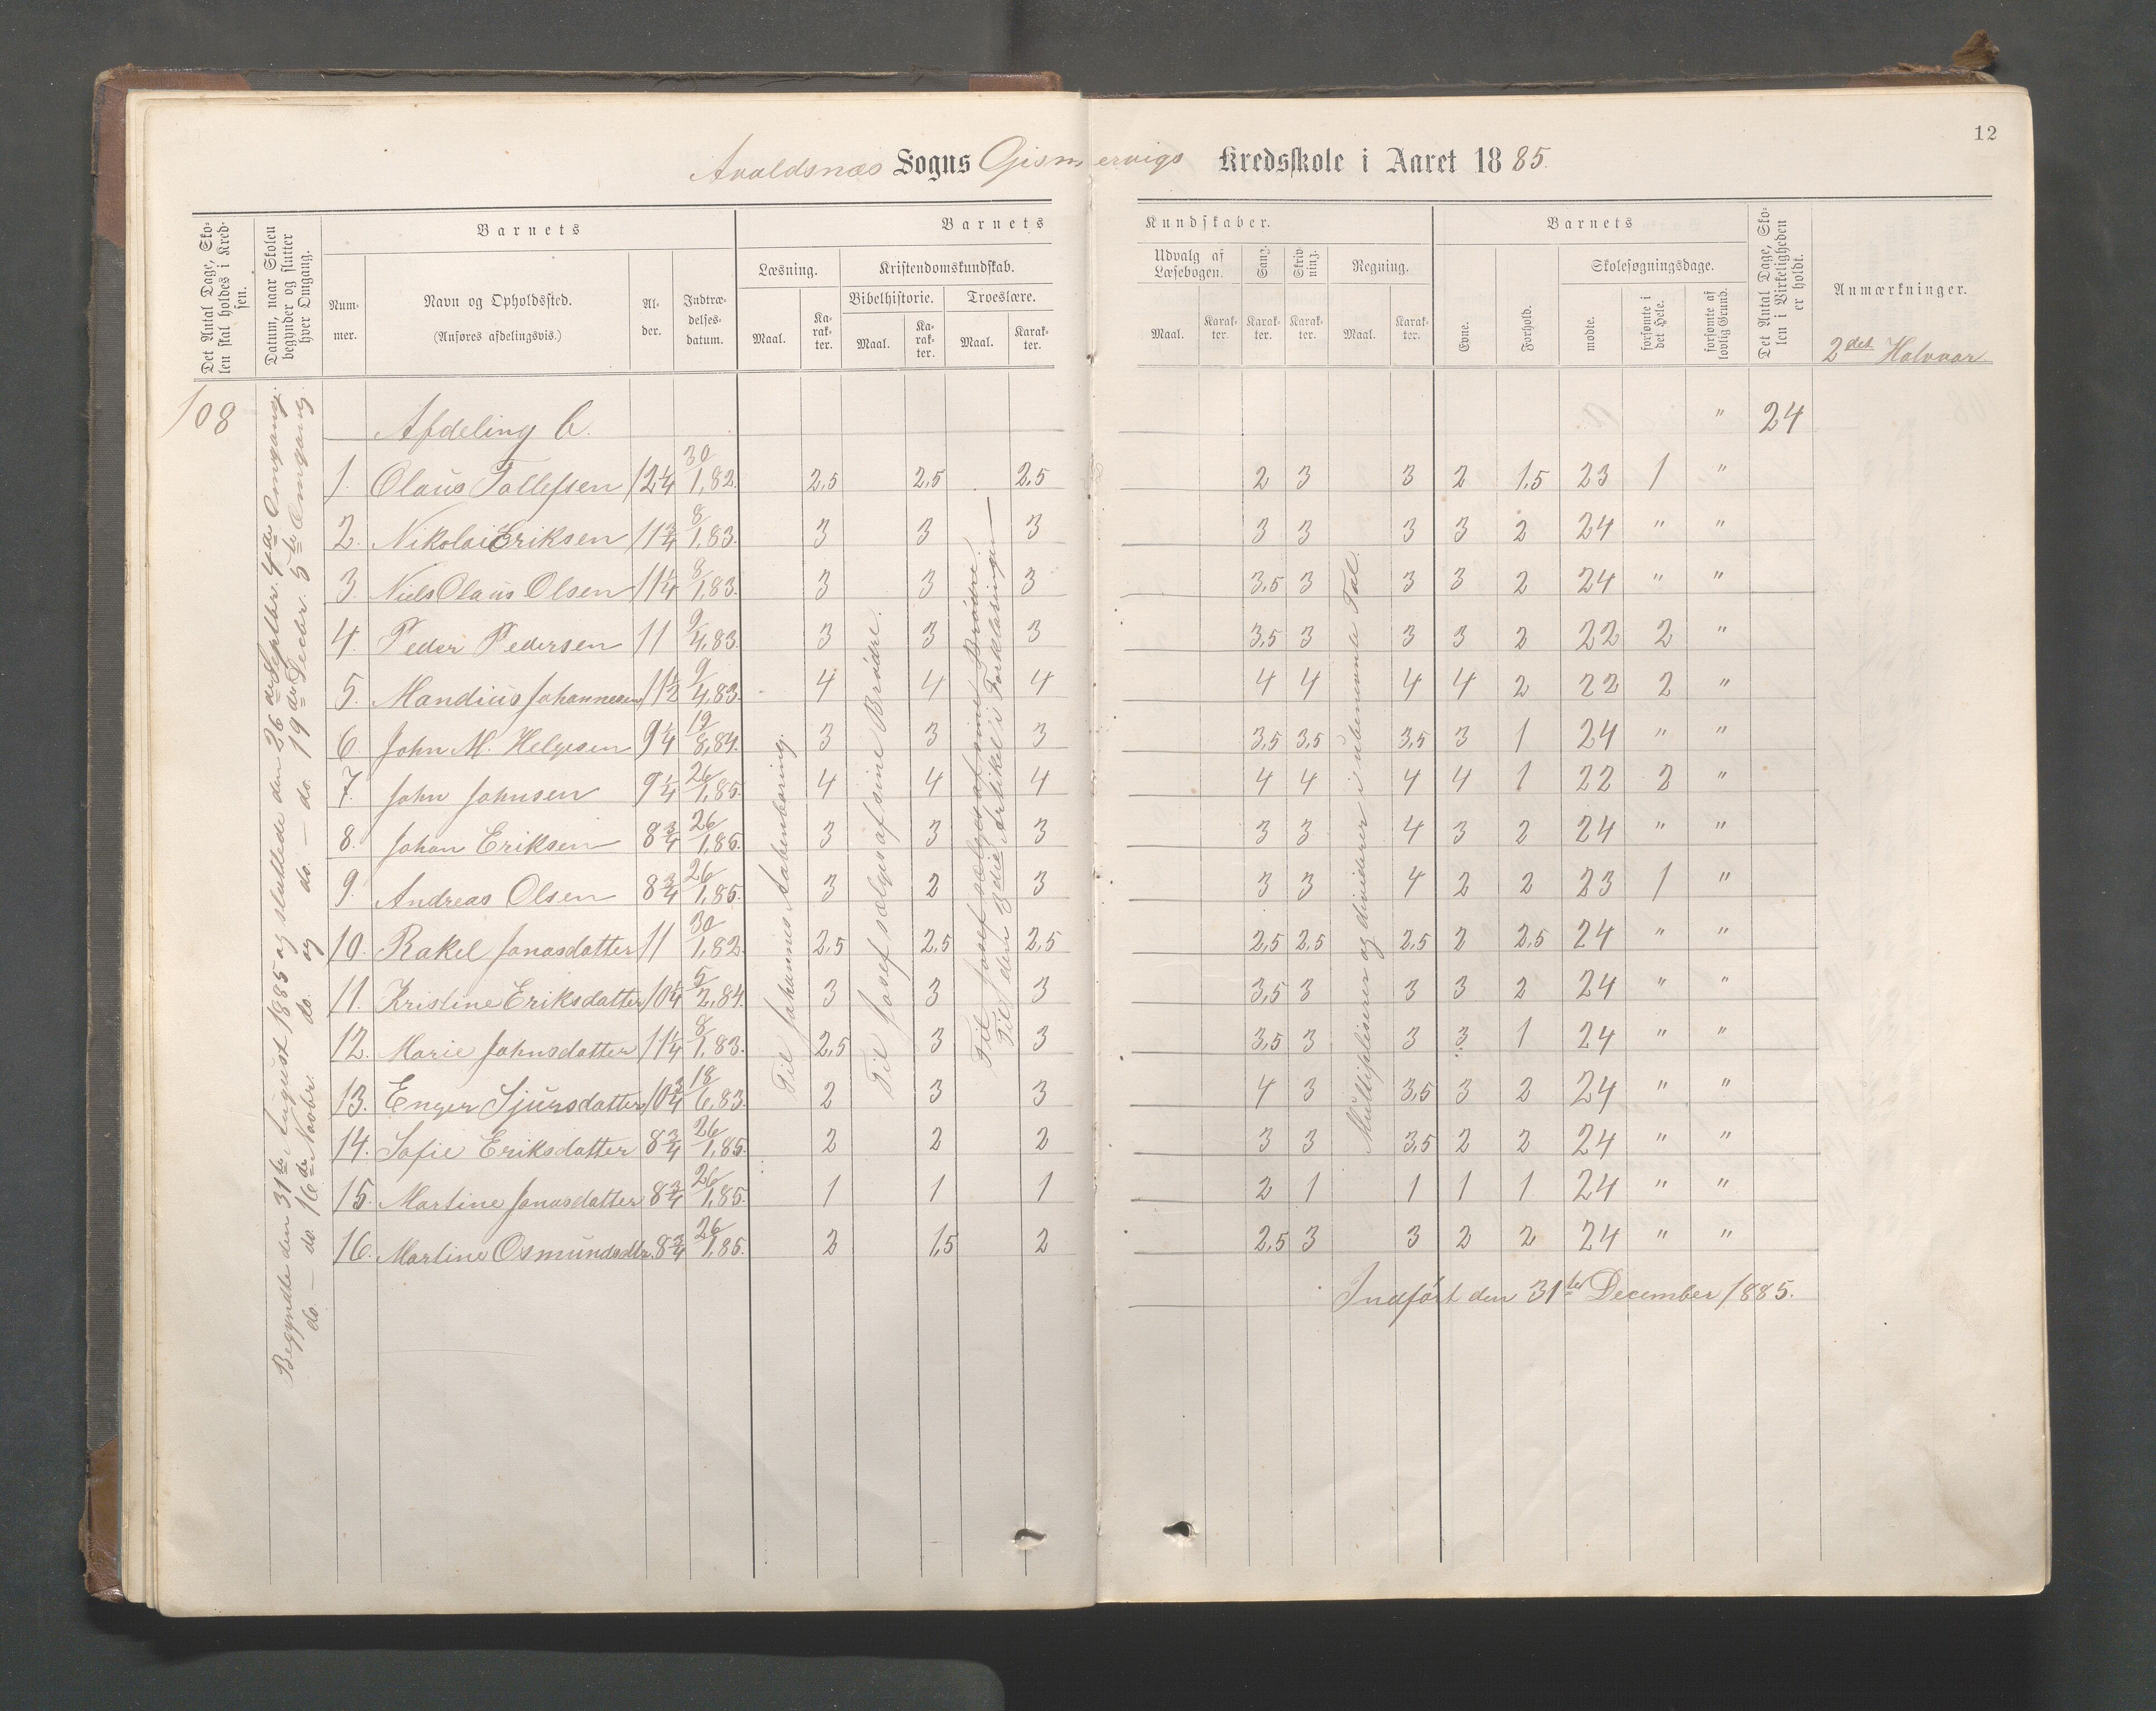 12
Avaldsnæs Sogns Gismervigs Kredsskole i Aaret 1885.
Det Antal Dage, Skolen skal holdes i Kredsen.
Datum, naar Skolen begynder og slutter hver Omgang.
Barnets
Nummer.
Navn og Opholdssted.
(Anføres afdelingsvis.)
Alder.
Indtrædelsesdatum.
Barnets Kundskaber.
Læsning.
Maal.
Karakter.
Kristendomskundskab.
Bibelhistorie.
Maal.
Karakter.
Troeslære.
Maal.
Karakter.
Udvalg af Læsebogen.
Maal.
Karakter.
Sang.
Karakter.
Skrivning.
Karakter.
Regning.
Maal.
Karakter.
Barnets
Evne.
Forhold.
Skolesøgningsdage.
mødte.
forsømte i det Hele.
forsømte af lovlig Grund.
Det Antal Dage, Skolen i Virkeligheden er holdt.
Anmærkninger.
2det Halvaar
108 Afdeling C. " 24
1. Olaus Tollefsen 12 1/4 30/1,82. 2,5 2,5 2,5 2 3 3 2 1,5 23 1 "
2. Nikolai Eriksen 11 3/4 8/1,83. 3 3 3 3 3 3 3 2 24 " "
3. Niels Olaus Olsen 11 1/4 8/1,83. 3 3 3 3,5 3 3 3 2 24 " "
4. Peder Pedersen 11 9/4,83. 3 3 3 3,5 3 3 3 2 22 2 "
5. Mandius Johannesen 11 1/2 9/4,83. 4 4 4 4 4 4 4 2 22 2 "
6. John M. Helgesen 9 1/4 19/8,84. 3 3 3 3,5 3,5 3,5 3 1 24 " "
7. John Johnsen 9 1/4 26/1,85. 4 4 4 4 4 4 4 1 22 2 "
8. Johan Eriksen 8 3/4 26/1,85. 3 3 3 3 3 4 3 2 24 " "
9. Andreas Olsen 8 3/4 26/1,85. 3 2 3 3 3 4 2 2 23 1 "
10. Rakel Jonasdatter 11 30/1,82. 2,5 2,5 2,5 2,5 2,5 2,5 2 2,5 24 " "
11. Kristine Eriksdatter 10 1/4 5/2,84. 3 3 3 3,5 3 3 3 2 24 " "
12. Marie Johnsdatter 11 1/4 8/1,83. 2,5 3 3 3,5 3 3 3 1 24 " "
13. Enger Sjursdatter 10 3/4 18/6,83. 2 3 3 4 3 3,5 3 2 24 " "
14. Sofie Eriksdatter 8 3/4 26/1,85. 2 2 2 3 3 3,5 2 2 24 " "
15. Martine Jonasdatter 8 3/4 26/1,85. 1 1 1 2 1 1 1 1 24 " "
16. Martine Osmundsdtr. 8 3/4 26/1,85. 2 1,5 2 2,5 3 3 2 2 24 " "
Indført den 31te December 1885.
Begyndte den 31te August 1885 og sluttede den 26de Septbr. 4de Omgang.
do. — do. 16de Novbr. do. og do. — do. 19de Decbr. 5te Omgang
Til Johannes Aabenbaring.
Til Josef sælges af sine Brødre.
Til Josef sælges af sine Brødre.
Til den 3die Artikel i Forklaringen —
Multipliserer og dividerer i ubenevnte Tal.